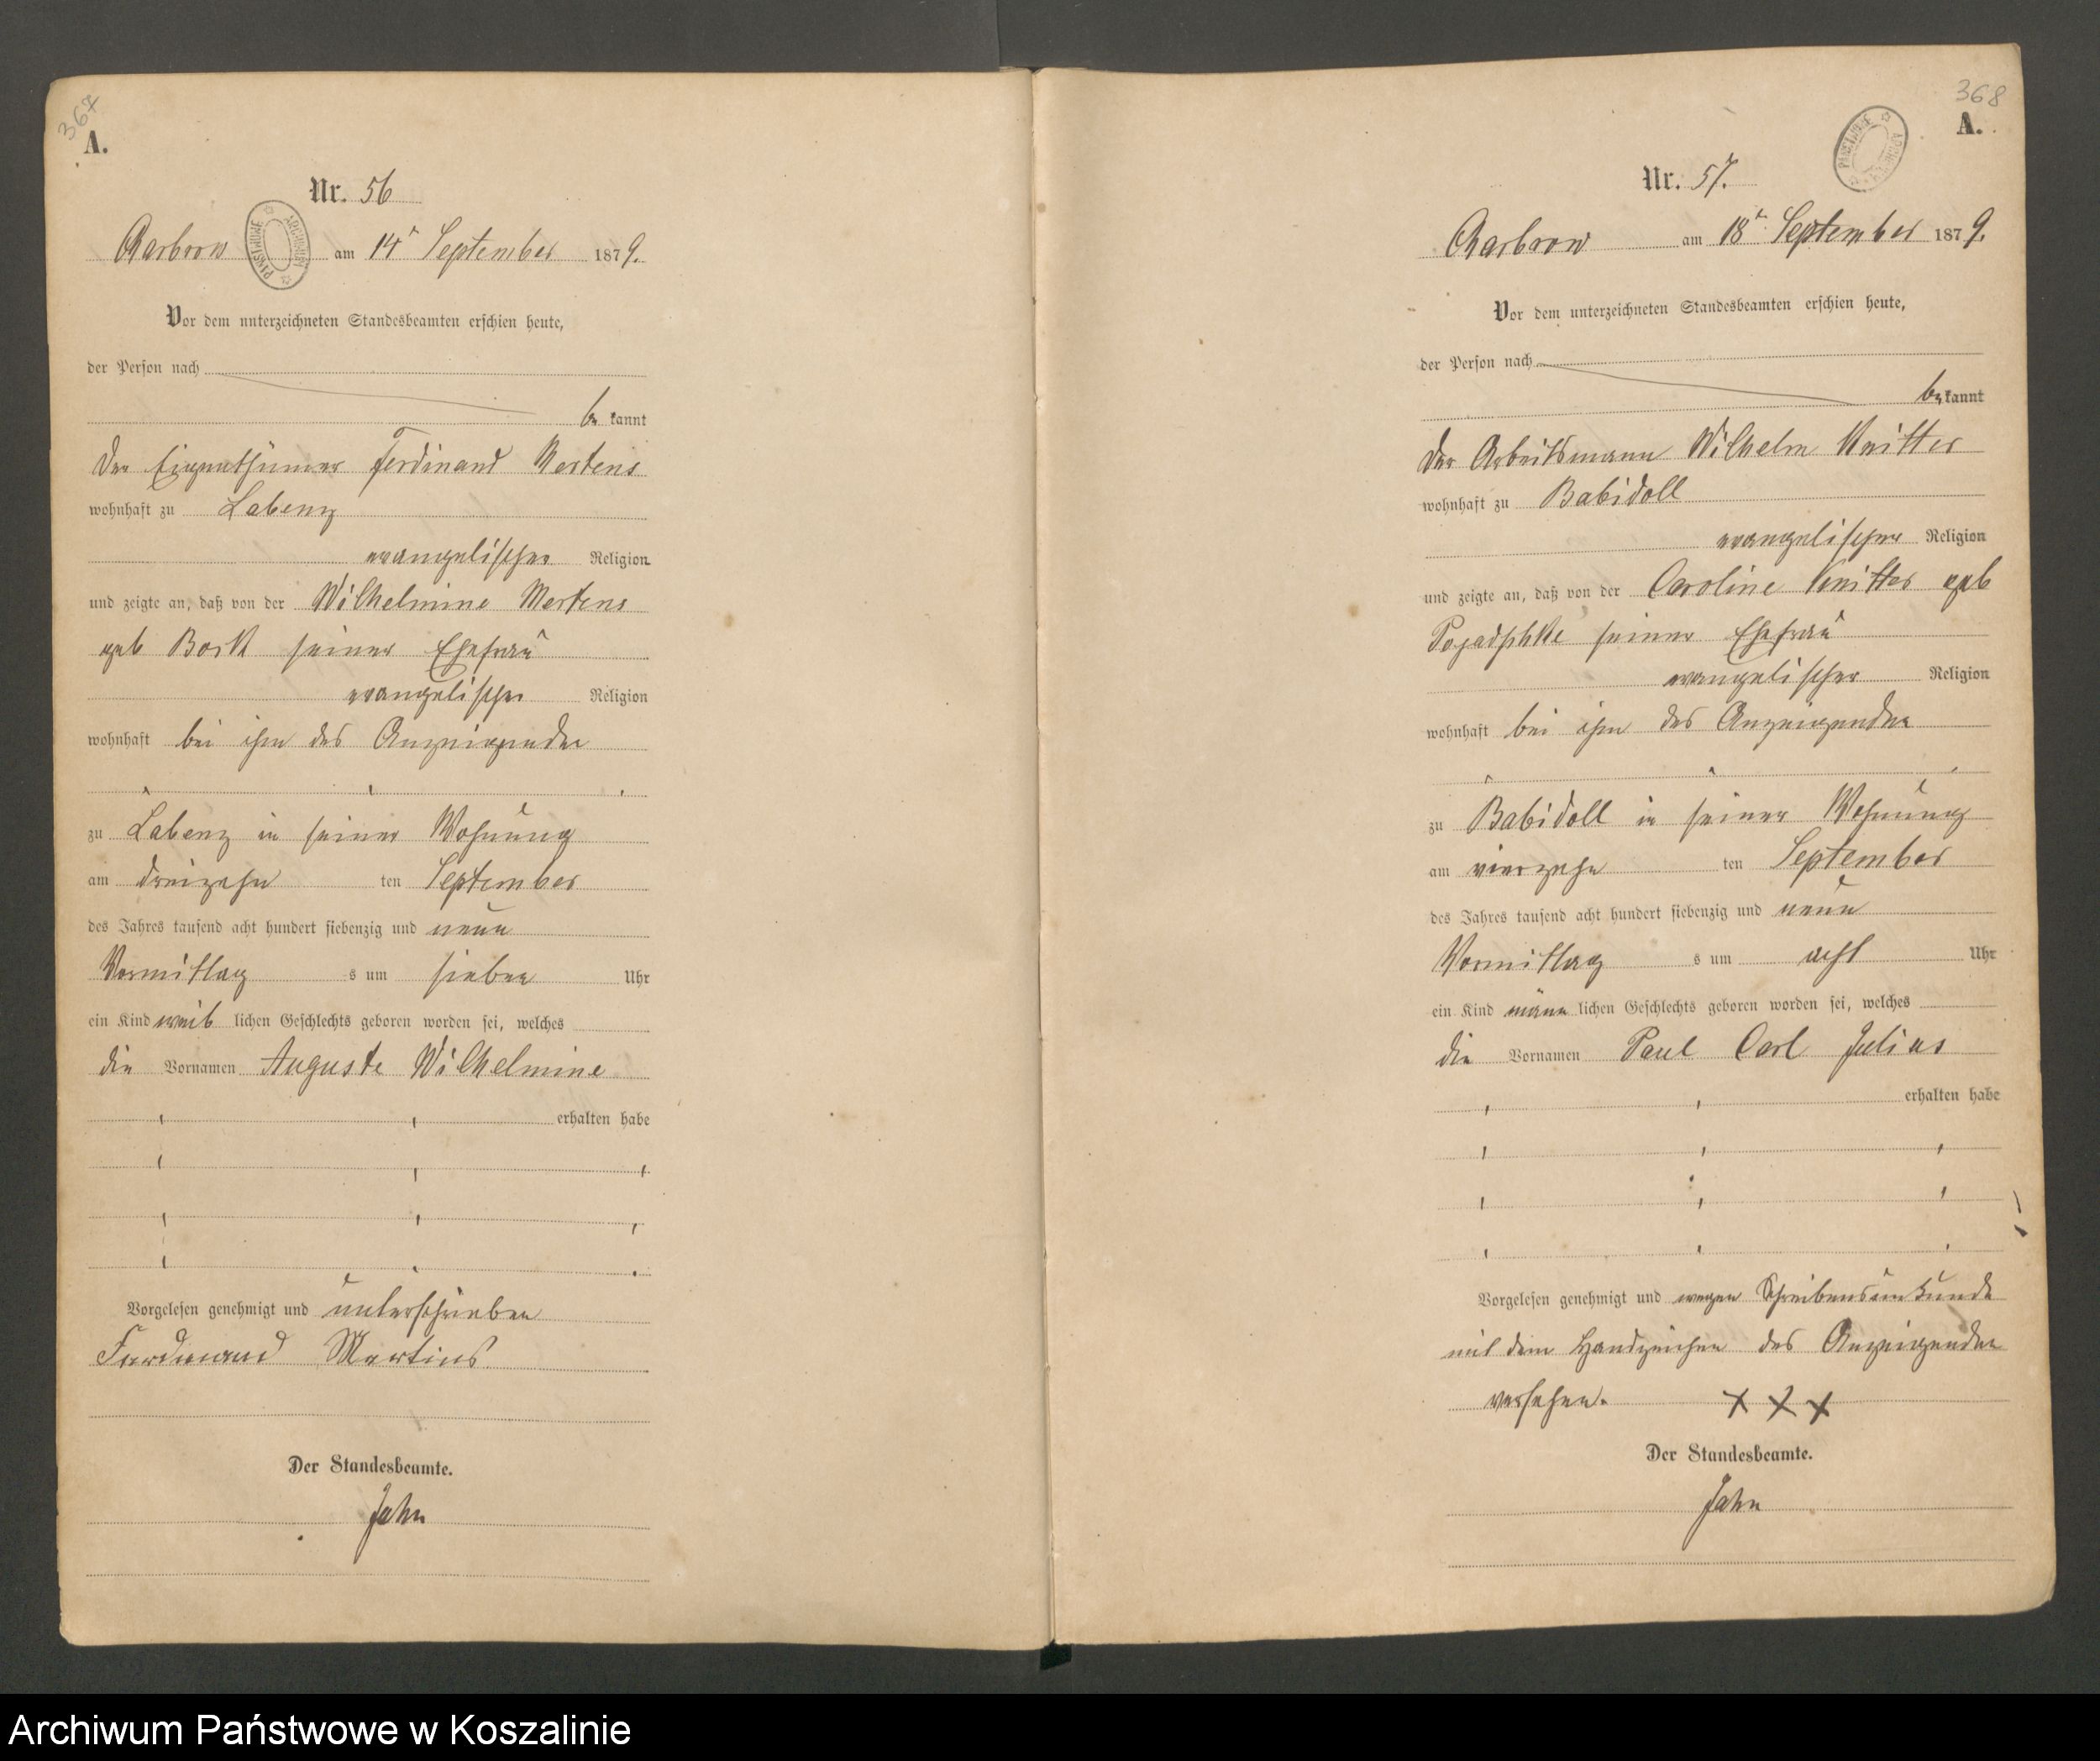 367
A.
Nr. 56
Charbrow am 14t September 1879.
Vor dem unterzeichneten Standesbeamten erschien heute,
der Person nach
be kannt
der Eigenthümer Ferdinand Mertens
wohnhaft zu Labenz
evangelischer Religion
und zeigte an, daß von der Wilhelmine Mertens
geb Bork seiner Ehefrau
evangelischer Religion
wohnhaft bei ihm des Anzeigenden
zu Labenz in seiner Wohnung
am dreizehn ten September
des Jahres tausend acht hundert siebenzig und neun
Vormittag s um sieben Uhr
ein Kind weib lichen Geschlechts geboren worden sei, welches
die Vornamen Auguste Wilhelmine
erhalten habe
Vorgelesen genehmigt und unterschrieben
Ferdinand Mertins
Der Standesbeamte.
Jahn
368
A.
Nr. 57.
Charbrow am 18t September 1879.
Vor dem unterzeichneten Standesbeamten erschien heute,
der Person nach
be kannt
der Arbeitsmann Wilhelm Knitter
wohnhaft zu Babidoll
evangelischer Religion
und zeigte an, daß von der Caroline Knitter geb
seiner Ehefrau
evangelischer Religion
wohnhaft bei ihm des Anzeigenden
zu Babidoll in seiner Wohnung
am vierzehn ten September
des Jahres tausend acht hundert siebenzig und neun
Vormittag s um acht Uhr
ein Kind männ lichen Geschlechts geboren worden sei, welches
die Vornamen Paul Carl Julius
erhalten habe
Vorgelesen genehmigt und wegen Schreibensunkunde
mit dem Handzeichen des Anzeigenden
versehen. XXX
Der Standesbeamte.
Jahn
Archiwum Państwowe w Koszalinie